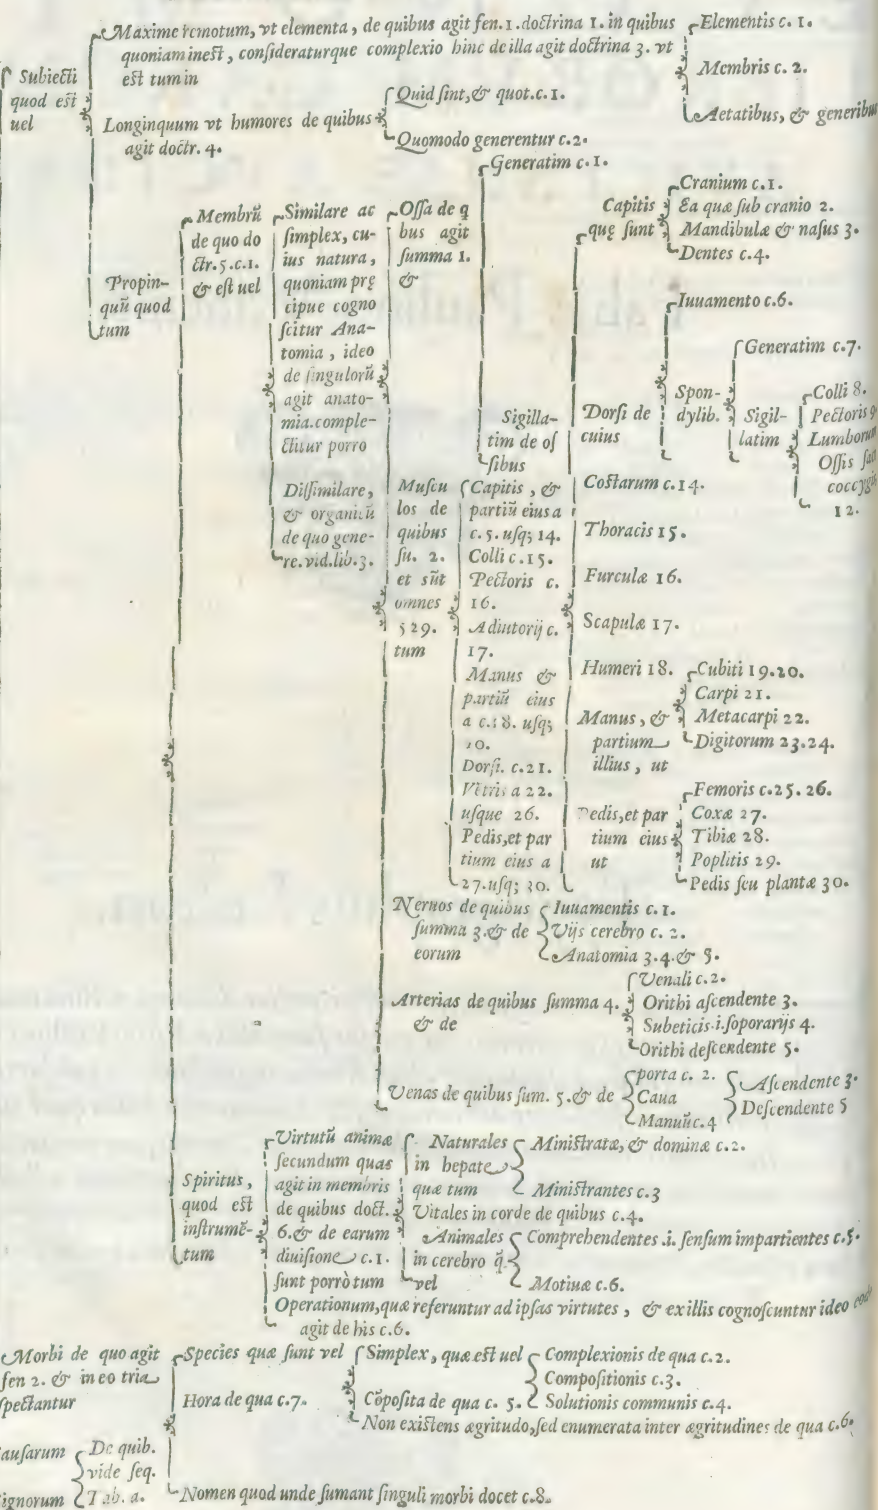 Maxime remotum, vt elementa, de quibus agit fen. 1. doctrina 1. in quibus
quoniam inest, consideraturque complexio hinc de illa agit doctrina 3. vt
est tum in
Elementis c. 1.
Membris c. 2.
Aetatibus, & generibus
Subiecti
quod est
uel
Longinquum vt humores de quibus
agit doctr. 4.
Quid sint, & quot. c. 1.
Quomodo generentur c. 2.
Propin-
quũ quod
tum
Membrũ
de quo do
ctr. 5. c. 1.
& est uel
Similare ac
simplex, cu-
ius natura,
quoniam prę
cipue cogno
scitur Ana-
tomia, ideo
de singulorũ
agit anato-
mia. comple-
ctitur porro
Dissimilare,
& organicũ
de quo gene-
re. vid. lib. 3.
Ossa de q
bus agit
summa 1.
&
Generatim c. 1.
Sigilla-
tim de os
sibus
Capitis
quę sunt
Cranium c. 1.
Ea quæ sub cranio 2.
Mandibulæ & nasus 3.
Dentes c. 4.
Dorsi de
cuius
Iuuamento c. 6.
Spon-
dylib.
Generatim c. 7.
Sigil-
latim
Colli 8.
Pectoris 9
Lumborum
Ossis
coccygis
12.
Costarum c. 14.
Thoracis 15.
Furculæ 16.
Scapulæ 17.
Humeri 18.
Manus, &
partium
illius, ut
Cubiti 19. 20.
Carpi 21.
Metacarpi 22.
Digitorum 23. 24.
Pedis, et par
tium eius
ut
Femoris c. 25. 26.
Coxæ 27.
Tibiæ 28.
Poplitis 29.
Pedis seu plantæ 30.
Muscu
los de
quibus
su. 2.
et sũt
omnes
529.
tum
Capitis, &
partiũ eius a
c. 5. usq; 14.
Colli c. 15.
Pectoris c.
16.
Adiutorij c.
17.
Manus &
partiũ eius
a c. 18. usq;
20.
Dorsi. c. 21.
Vẽtris a 22.
usque 26.
Pedis, et par
tium eius a
27. usq; 30.
Neruos de quibus
summa 3. & de
eorum
Iuuamentis c. 1.
Vijs cerebro c. 2.
Anatomia 3. 4. & 5.
Arterias de quibus summa 4.
& de
Venali c. 2.
Orithi ascendente 3.
Subeticis .i. soporarijs 4.
Orithi descendente 5.
Venas de quibus sum. 5. & de
porta c. 2.
Caua
Manuũ c. 4
Ascendente 3.
Descendente 5
Spiritus,
quod est
instrumẽ-
tum
Virtutũ animæ
secundum quas
agit in membris
de quibus doct.
6. & de earum
diuisione c. 1.
sunt porrò tum
Naturales
in hepate
quæ tum
Ministratæ, & dominæ c. 2.
Ministrantes c. 3
Vitales in corde de quibus c. 4.
Animales
in cerebro q̃.
vel
Comprehendentes .i. sensum impartientes c. 5.
Motiuæ c. 6.
Operationum, quæ referuntur ad ipsas virtutes, & ex illis cognoscuntur ideo
agit de his c. 6.
Morbi de quo agit
fen 2. & in eo tria
spectantur
Species quæ sunt vel
Simplex, quæ est uel
Complexionis de qua c. 2.
Compositionis c. 3.
Solutionis communis c. 4.
Cõposita de qua c. 5.
Non existens ægritudo, sed enumerata inter ægritudines de qua c. 6.
Hora de qua c. 7.
Nomen quod unde sumant singuli morbi docet c. 8.
Causarum
Signorum
De quib.
vide seq.
Tab. a.